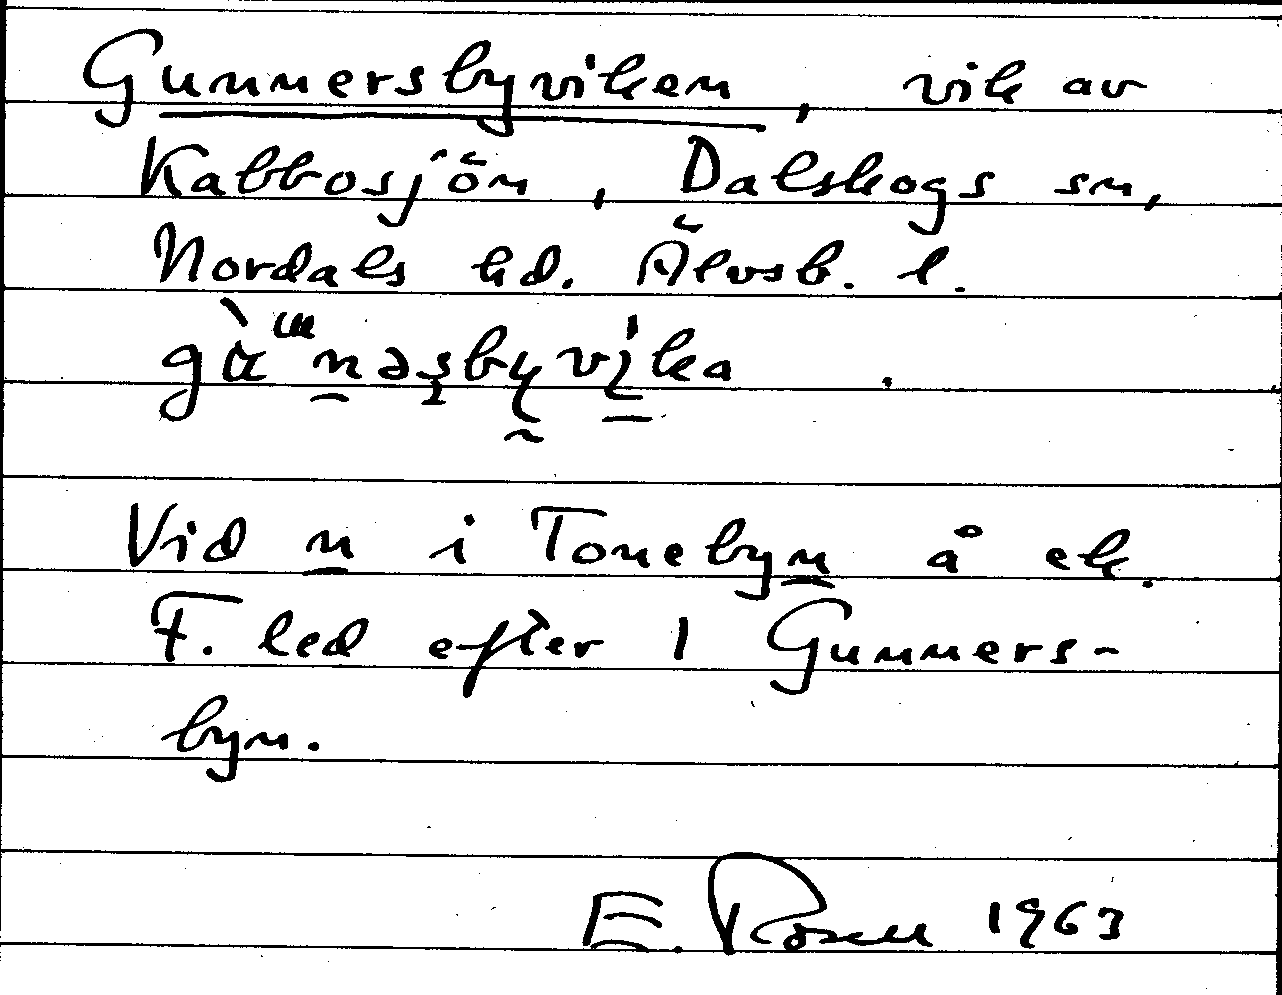 Gunnersbyviken, vik av
Kabbosjön, Dalskogs sn,
Nordals hd. Älvsb. l.
Vid n i Tonebyn å ek.
F. led efter 1 Gunners-
byn.
E. Rosell 1963